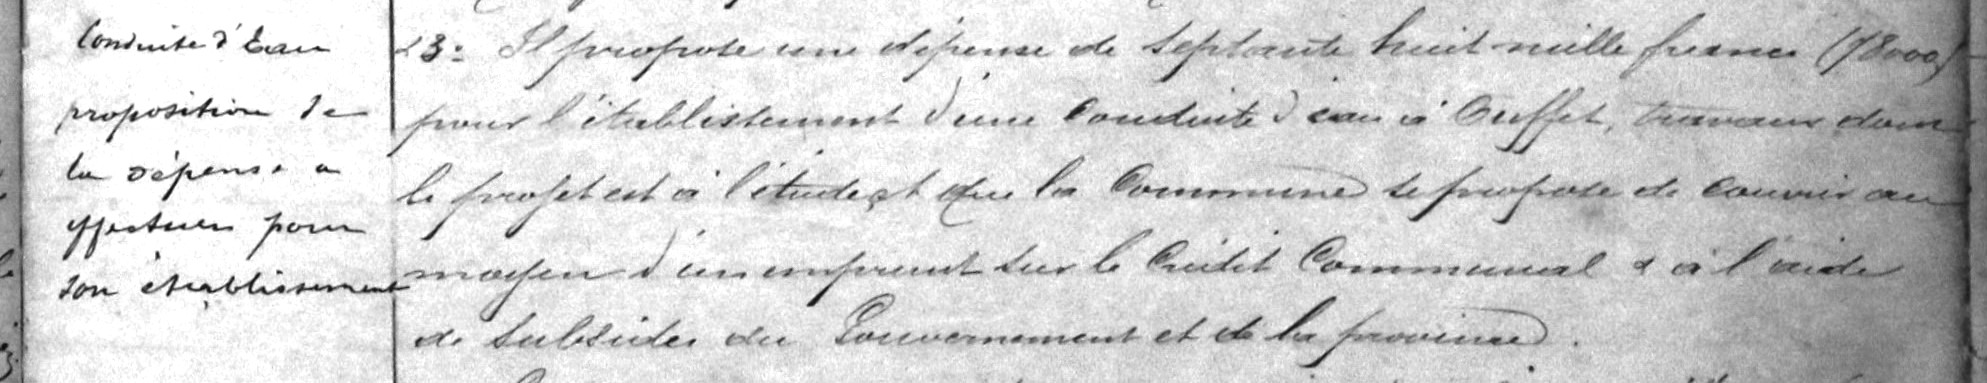 Conduite d'Eau
proposition de
la dépense a
effectuer pour
son établissement
23: Il propose une dépense de septante huit mille francs (78000)
pour l'établissement d'une conduite d'eau à Ouffet, travaux dont
le projet est à l'étude et que la Commune se propose de couvrir au
moyen d'un emprunt sur le Crédit Communal & à l'aide
de subsides du Gouvernement et de la province.